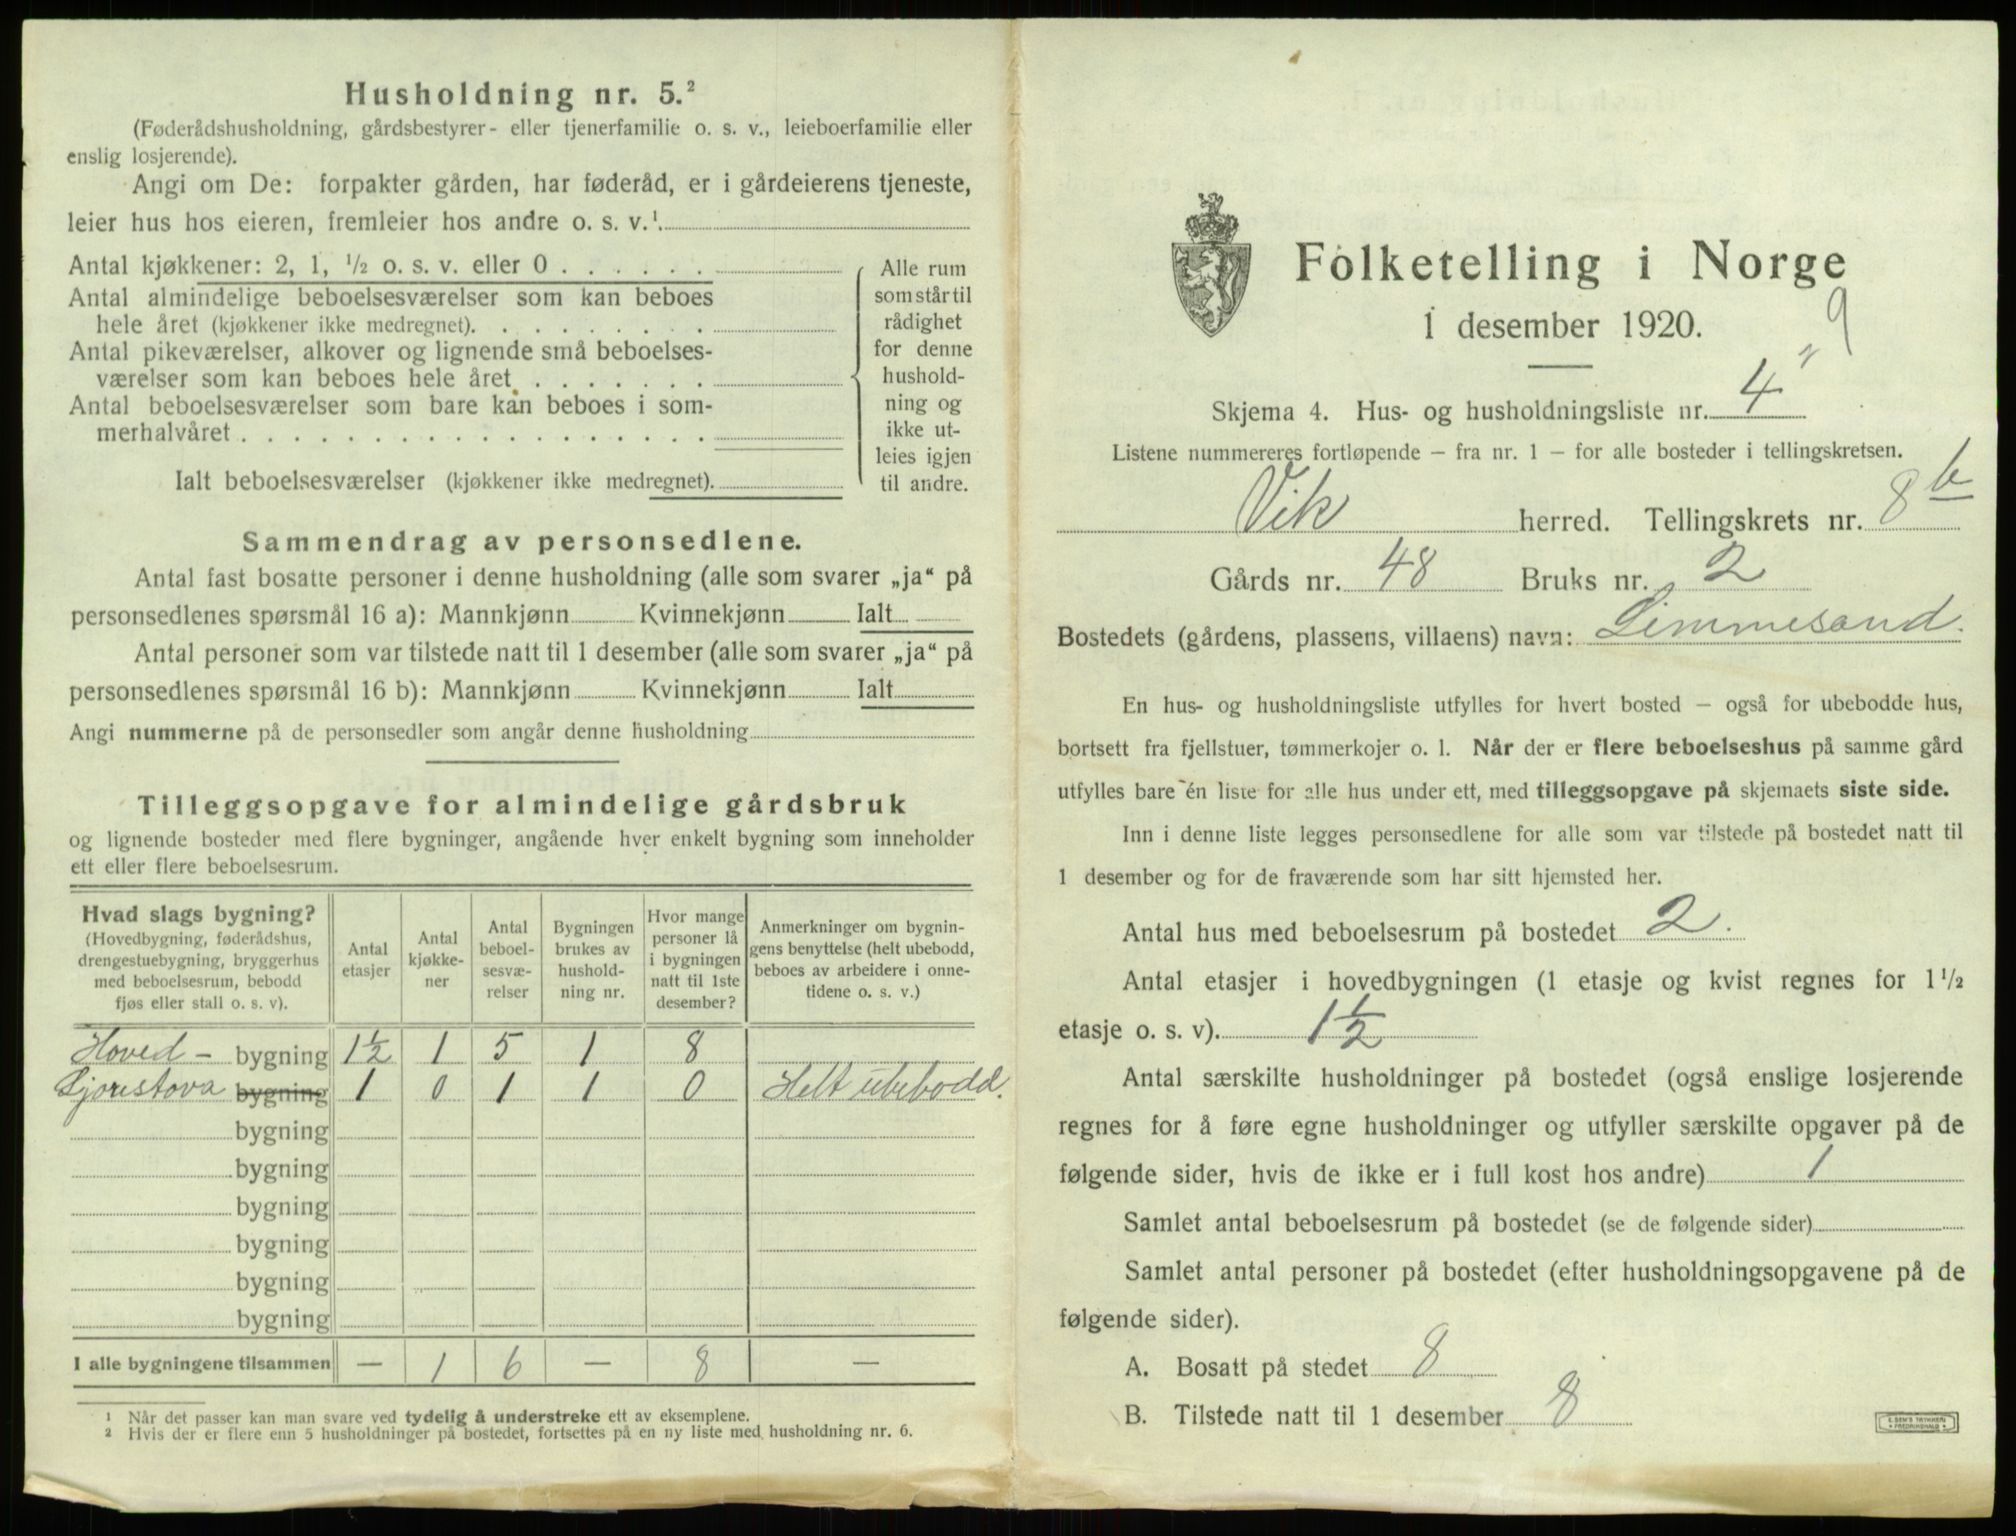 Husholdning nr. 5.²
(Føderådshusholdning, gårdsbestyrer- eller tjenerfamilie o. s. v., leieboerfamilie eller
enslig losjerende).
Angi om De: forpakter gården, har føderåd, er i gårdeierens tjeneste,
leier hus hos eieren, fremleier hos andre o. s. v.¹
Antal kjøkkener: 2, 1, ½ o. s. v. eller 0
Antal almindelige beboelsesværelser som kan beboes
hele året (kjøkkener ikke medregnet).
Antal pikeværelser, alkover og lignende små beboelses-
værelser som kan beboes hele året
Antal beboelsesværelser som bare kan beboes i som-
merhalvåret
Ialt beboelsesværelser (kjøkkener ikke medregnet).
Alle rum
som står til
rådighet
for denne
hushold-
ning og
ikke ut-
leies igjen
til andre.
Sammendrag av personsedlene.
Antal fast bosatte personer i denne husholdning (alle som svarer „ja“ på
personsedlenes spørsmål 16 a): Mannkjønn Kvinnekjønn Ialt
Antal personer som var tilstede natt til 1 desember (alle som svarer „ja“ på
personsedlenes spørsmål 16 b): Mannkjønn Kvinnekjønn Ialt
Angi nummerne på de personsedler som angår denne husholdning
Tilleggsopgave for almindelige gårdsbruk
og lignende bosteder med flere bygninger, angående hver enkelt bygning som inneholder
ett eller flere beboelsesrum.
Hvad slags bygning?
(Hovedbygning, føderådshus,
drengestuebygning, bryggerhus
med beboelsesrum, bebodd
fjøs eller stall o. s. v).
Antal
etasjer
Antal
kjøkke-
ner
Antal
beboel-
sesvæ-
relser
Bygningen
brukes av
hushold-
ning nr.
Hvor mange
personer lå
i bygningen
natt til 1ste
desember?
Anmerkninger om bygnin-
gens benyttelse (helt ubebodd,
beboes av arbeidere i onne-
tidene o. s. v.)
Hoved- bygning 1½ 1 5 1 8
bygning 1 0 1 1 0 Helt ubebodd.
bygning
bygning
bygning
bygning
bygning
bygning
I alle bygningene tilsammen — 1 6 — 8 —
¹ Når det passer kan man svare ved tydelig å understreke ett av eksemplene.
² Hvis der er flere enn 5 husholdninger på bostedet, fortsettes på en ny liste med husholdning nr. 6.
Folketelling i Norge
1 desember 1920.
9
Skjema 4. Hus- og husholdningsliste nr. 4
Listene nummereres fortløpende – fra nr. 1 – for alle bosteder i tellingskretsen.
Vik herred. Tellingskrets nr. 8 b
Gårds nr. 48 Bruks nr. 2
Bostedets (gårdens, plassens, villaens) navn: Limmesand.
En hus- og husholdningsliste utfylles for hvert bosted – også for ubebodde hus,
bortsett fra fjellstuer, tømmerkojer o. l. Når der er flere beboelseshus på samme gård
utfylles bare én liste for alle hus under ett, med tilleggsopgave på skjemaets siste side.
Inn i denne liste legges personsedlene for alle som var tilstede på bostedet natt til
1 desember og for de fraværende som har sitt hjemsted her.
Antal hus med beboelsesrum på bostedet 2.
Antal etasjer i hovedbygningen (1 etasje og kvist regnes for 1½
etasje o. s. v). 1½
Antal særskilte husholdninger på bostedet (også enslige losjerende
regnes for å føre egne husholdninger og utfyller særskilte opgaver på de
følgende sider, hvis de ikke er i full kost hos andre) 1
Samlet antal beboelsesrum på bostedet (se de følgende sider)
Samlet antal personer på bostedet (efter husholdningsopgavene på de
følgende sider).
A. Bosatt på stedet 8
B. Tilstede natt til 1 desember 8
E. SEM'S TRYKKERI
FREDRIKSHALD